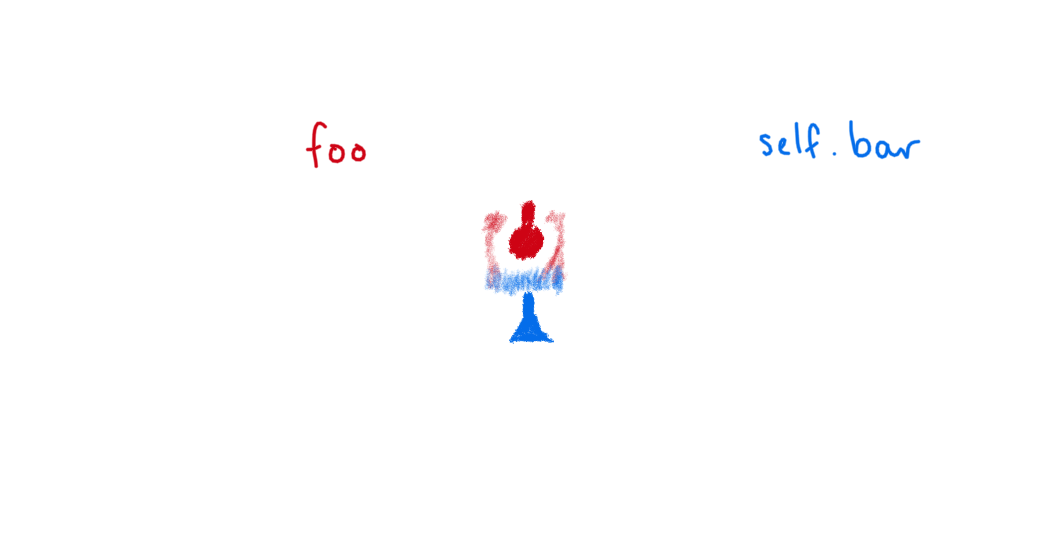 foo self.bar